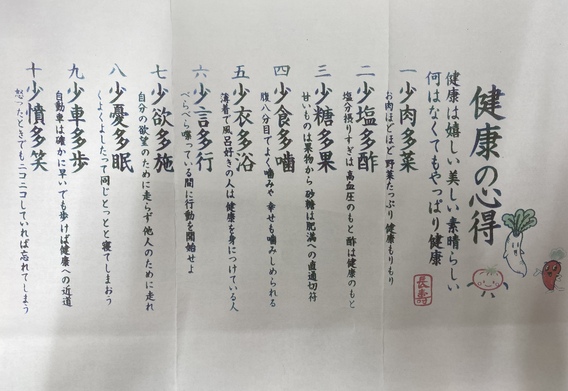 健康の心得
健康は嬉しい 美しい 素晴らしい
何はなくてもやっぱり健康
長寿
一 少肉多菜
お肉ほどほど 野菜たっぷり 健康もりもり
二 少塩多酢
塩分摂りすぎは高血圧のもと 酢は健康のもと
三 少糖多果
甘いものは果物から 砂糖は肥満への直通切符
四 少食多噛
腹八分目でよく噛みや 幸せも噛みしめられる
五 少衣多浴
薄着で風呂好きの人は 健康を身につけている人
六 少言多行
べらべら喋っている間に行動を開始せよ
七 少欲多施
自分の欲望のために走らず 他人のために走れ
八 少憂多眠
くよくよしたって同じ とっとと寝てしまおう
九 少車多歩
自動車は確かに早いでも歩けば健康への近道
十 少憤多笑
怒ったときでもニコニコしていれば忘れてしまう